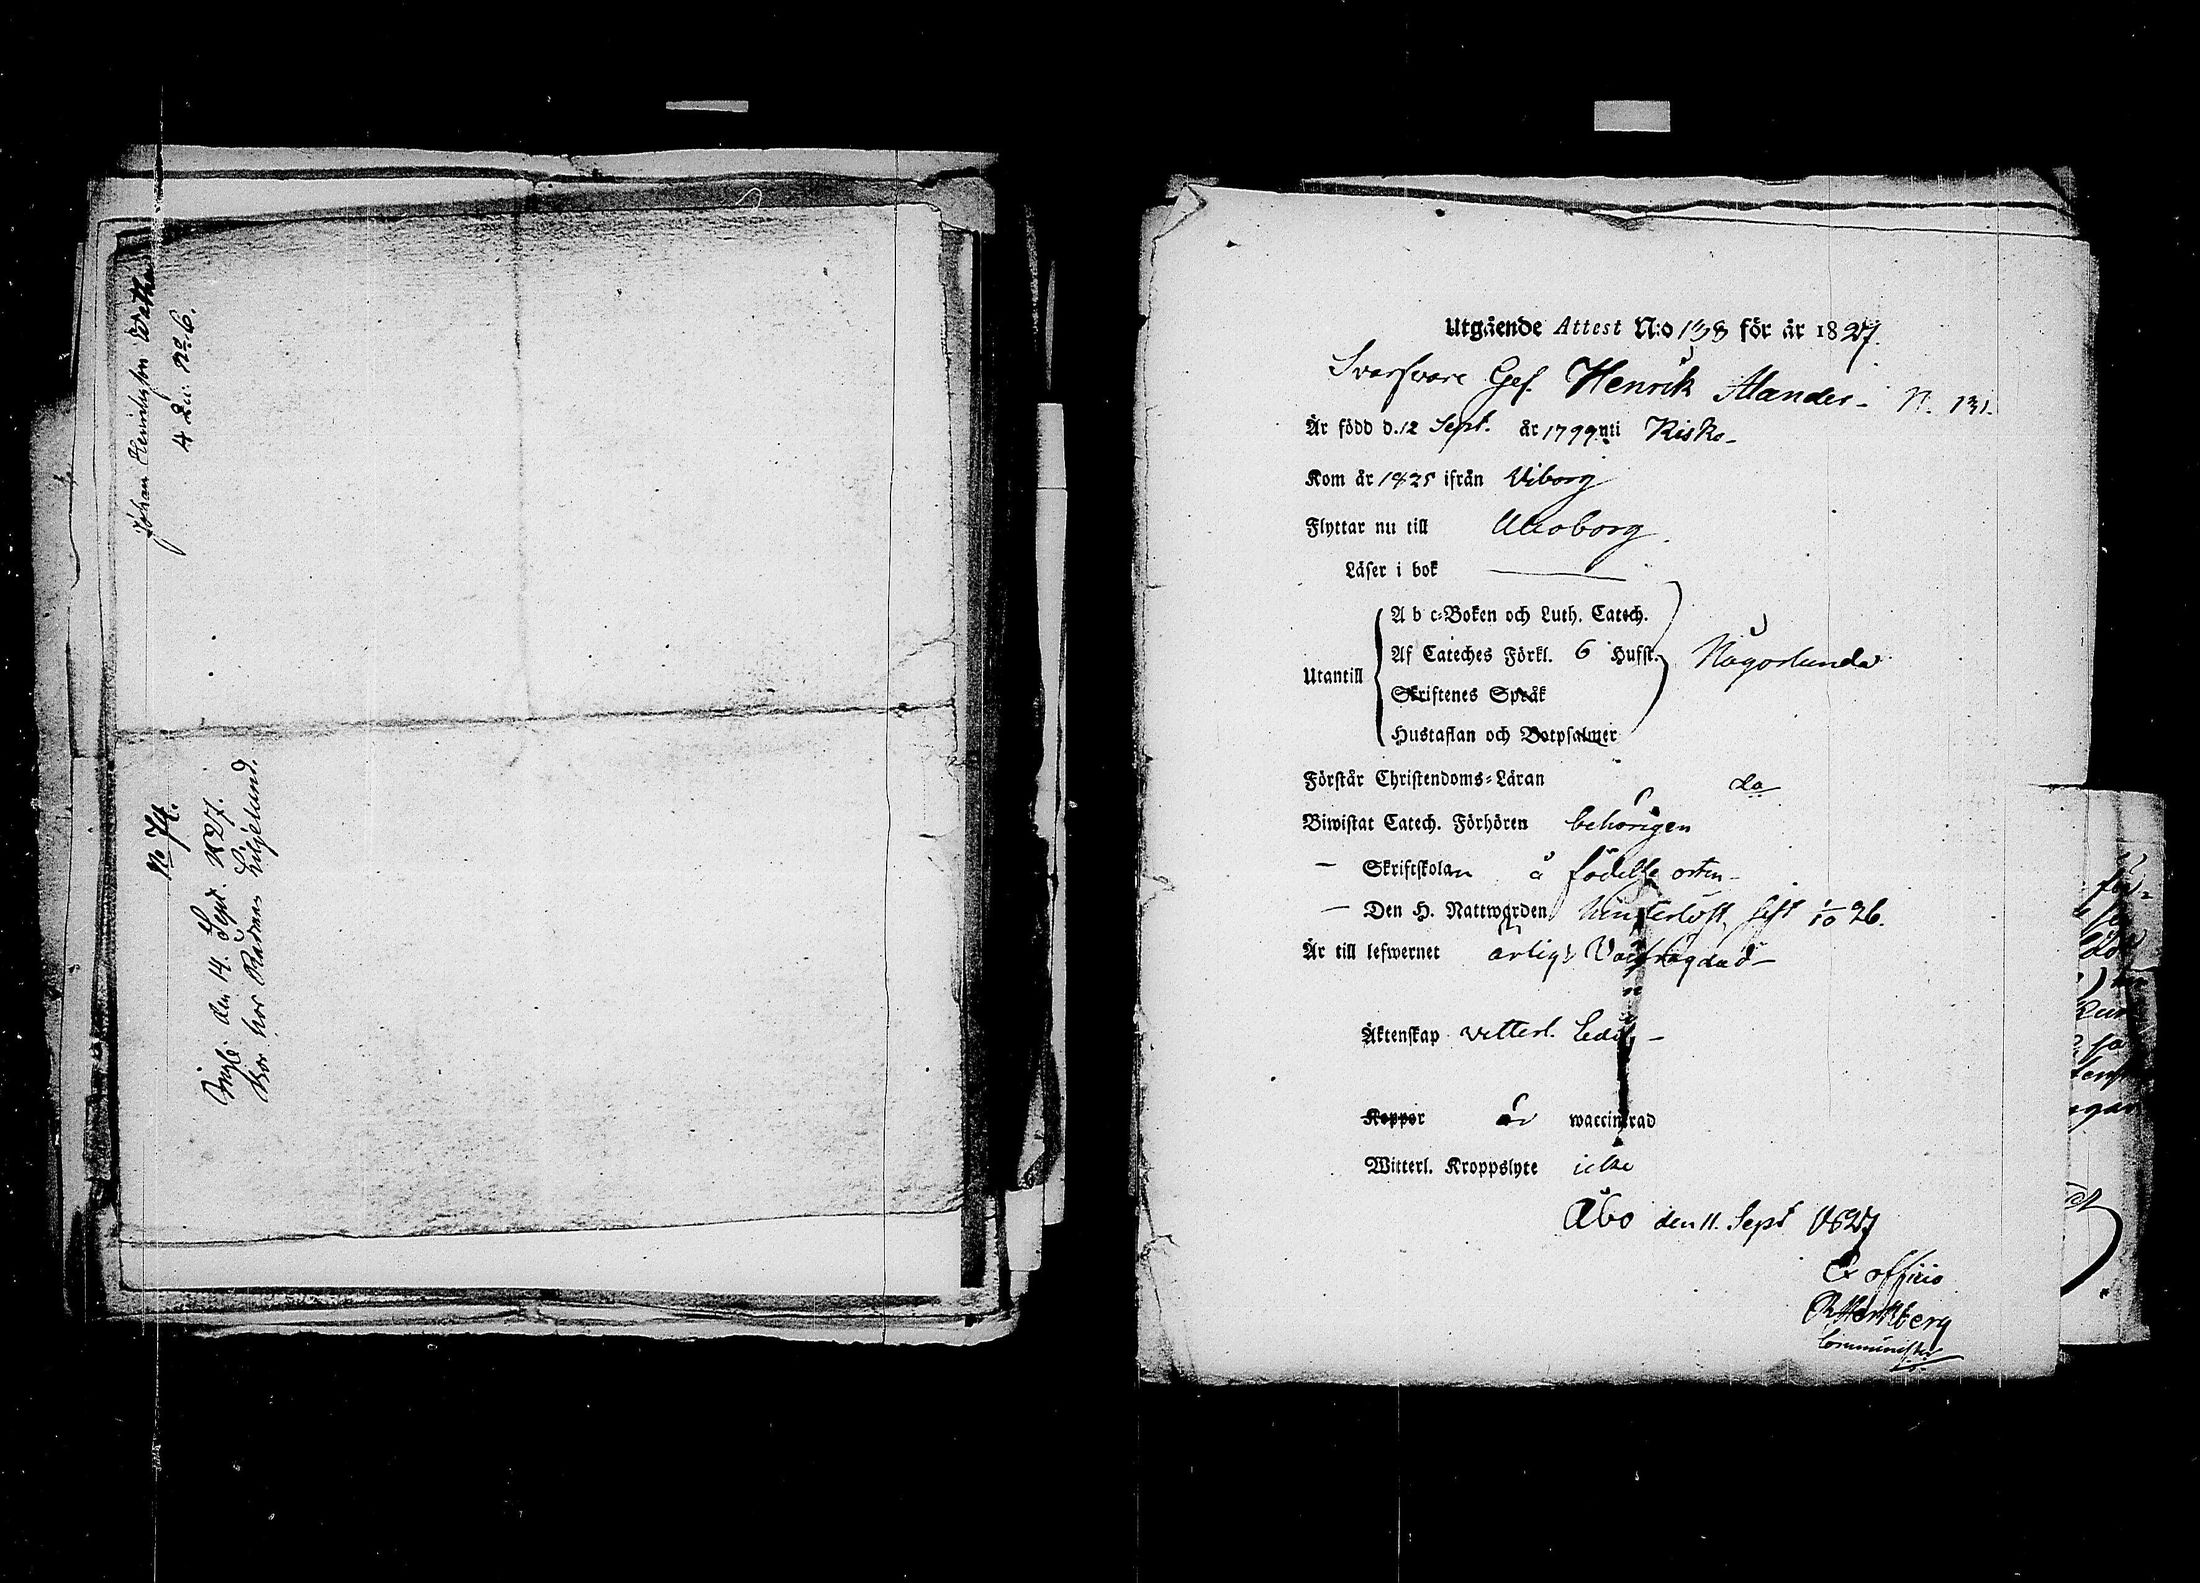 Johan Henricsson
4 Qu: No 6.
No 74.
Ingl: den 14. Sept. 1827.
Bor hos Rådman Liljelund.
Utgående Attest N:o 138 för år 1827.
Svarfvare Ges. Henrik Alander N. 131.
Är född d. 12 Sept. år 1799 uti Kisko
Kom år 1825 ifrån Viborg
Flyttar nu till Uleoborg.
Läser i bok —
A b c-Boken och Luth. Catech.
Af Cateches Förkl. 6 Hufst. Någorlunda
Utantill
Skriftenes Språk
Hustaflan och Botpsalmer
Förstår Christendoms-Läran do
Biwistat Catech. Förhören behörigen
— Skriftskolan å födelse orten
— Den H. Nattwarden sist 1/10 26.
Är till lefwernet ärlig
Äktenskap vitterl. Ledig
Koppor är waccinerad
Witterl. Kroppslyte icke
Åbo den 11. Sept 1827
Ex officio
Comminister